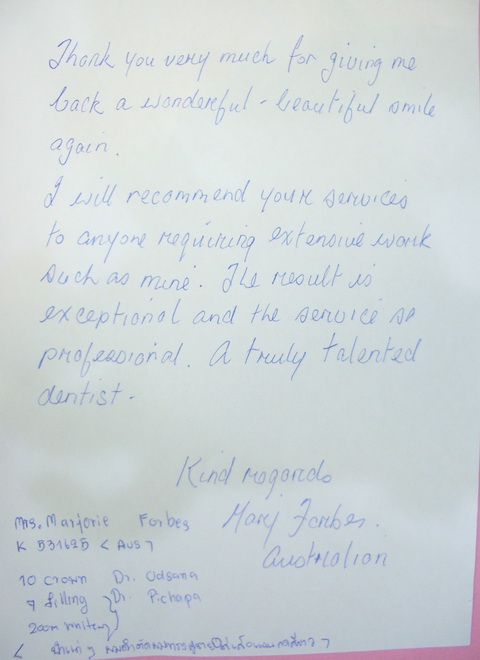 Thank you very much for giving me
back a wonderful - beautiful smile
again.
I will recommend your services
to anyone requiring extensive work
such as mine. The result is
exceptional and the service so
professional. A truly talented
dentist.
Kind regards
Marj Forbes.
Australian
Mrs. Marjorie Forbes
K 531625 < AUS 7
10 crown Dr. Odsana
7 filling Dr. Pichapa
zoom